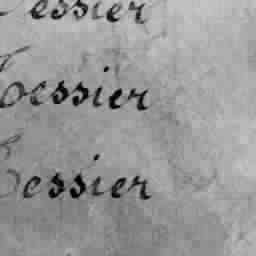 Tessier
Tessier
Tessier